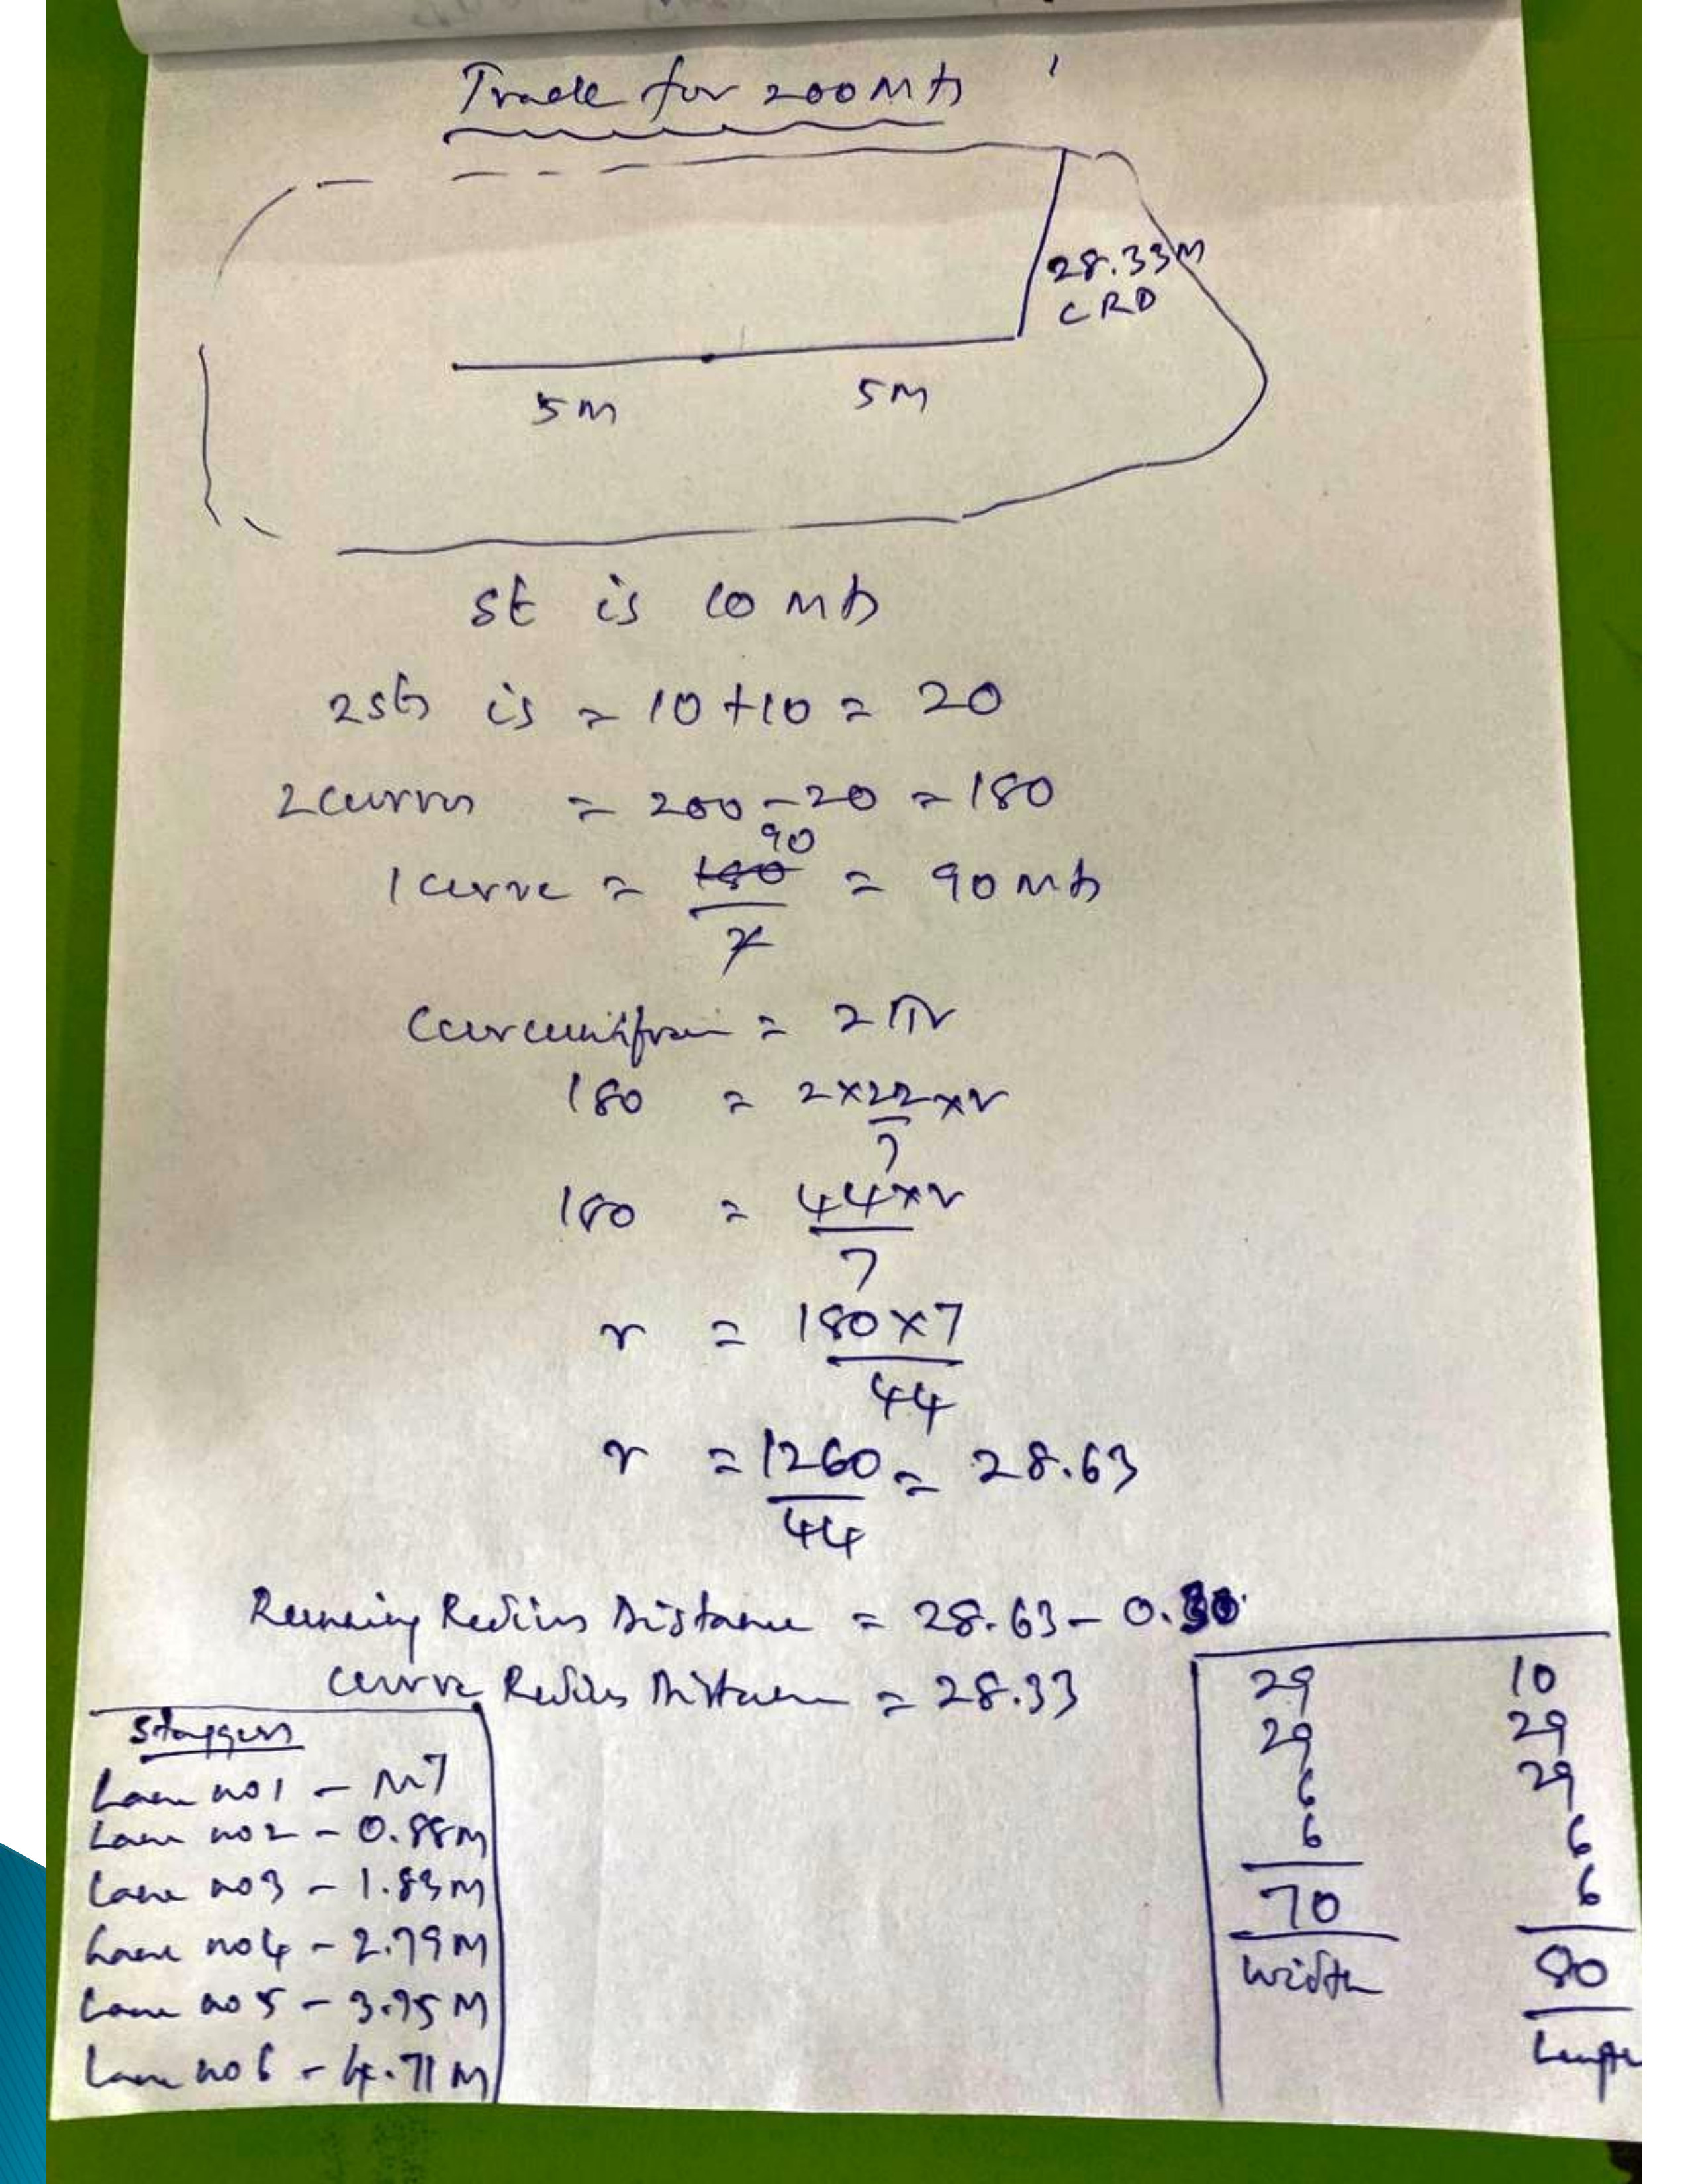 Track for 200 Mts
28.33M
CRD
5M 5M
st is 10 Mts
2sts is = 10+10 = 20
2 curves = 200-20 = 180
90
1 curve = 180/2 = 90 Mts
= 2πr
180 = 2×22/7×r
180 = 44×r/7
r = 180×7/44
r = 1260/44 = 28.63
Running Radius Distance = 28.63 - 0.30
curve Radius Distance = 28.33
Staggers
Lane no 1 - Nil
Lane no 2 - 0.88M
Lane no 3 - 1.83M
Lane no 4 - 2.79M
Lane no 5 - 3.75M
Lane no 6 - 4.71M
29 10
29 29
6 29
6 6
70 6
width 80
Length